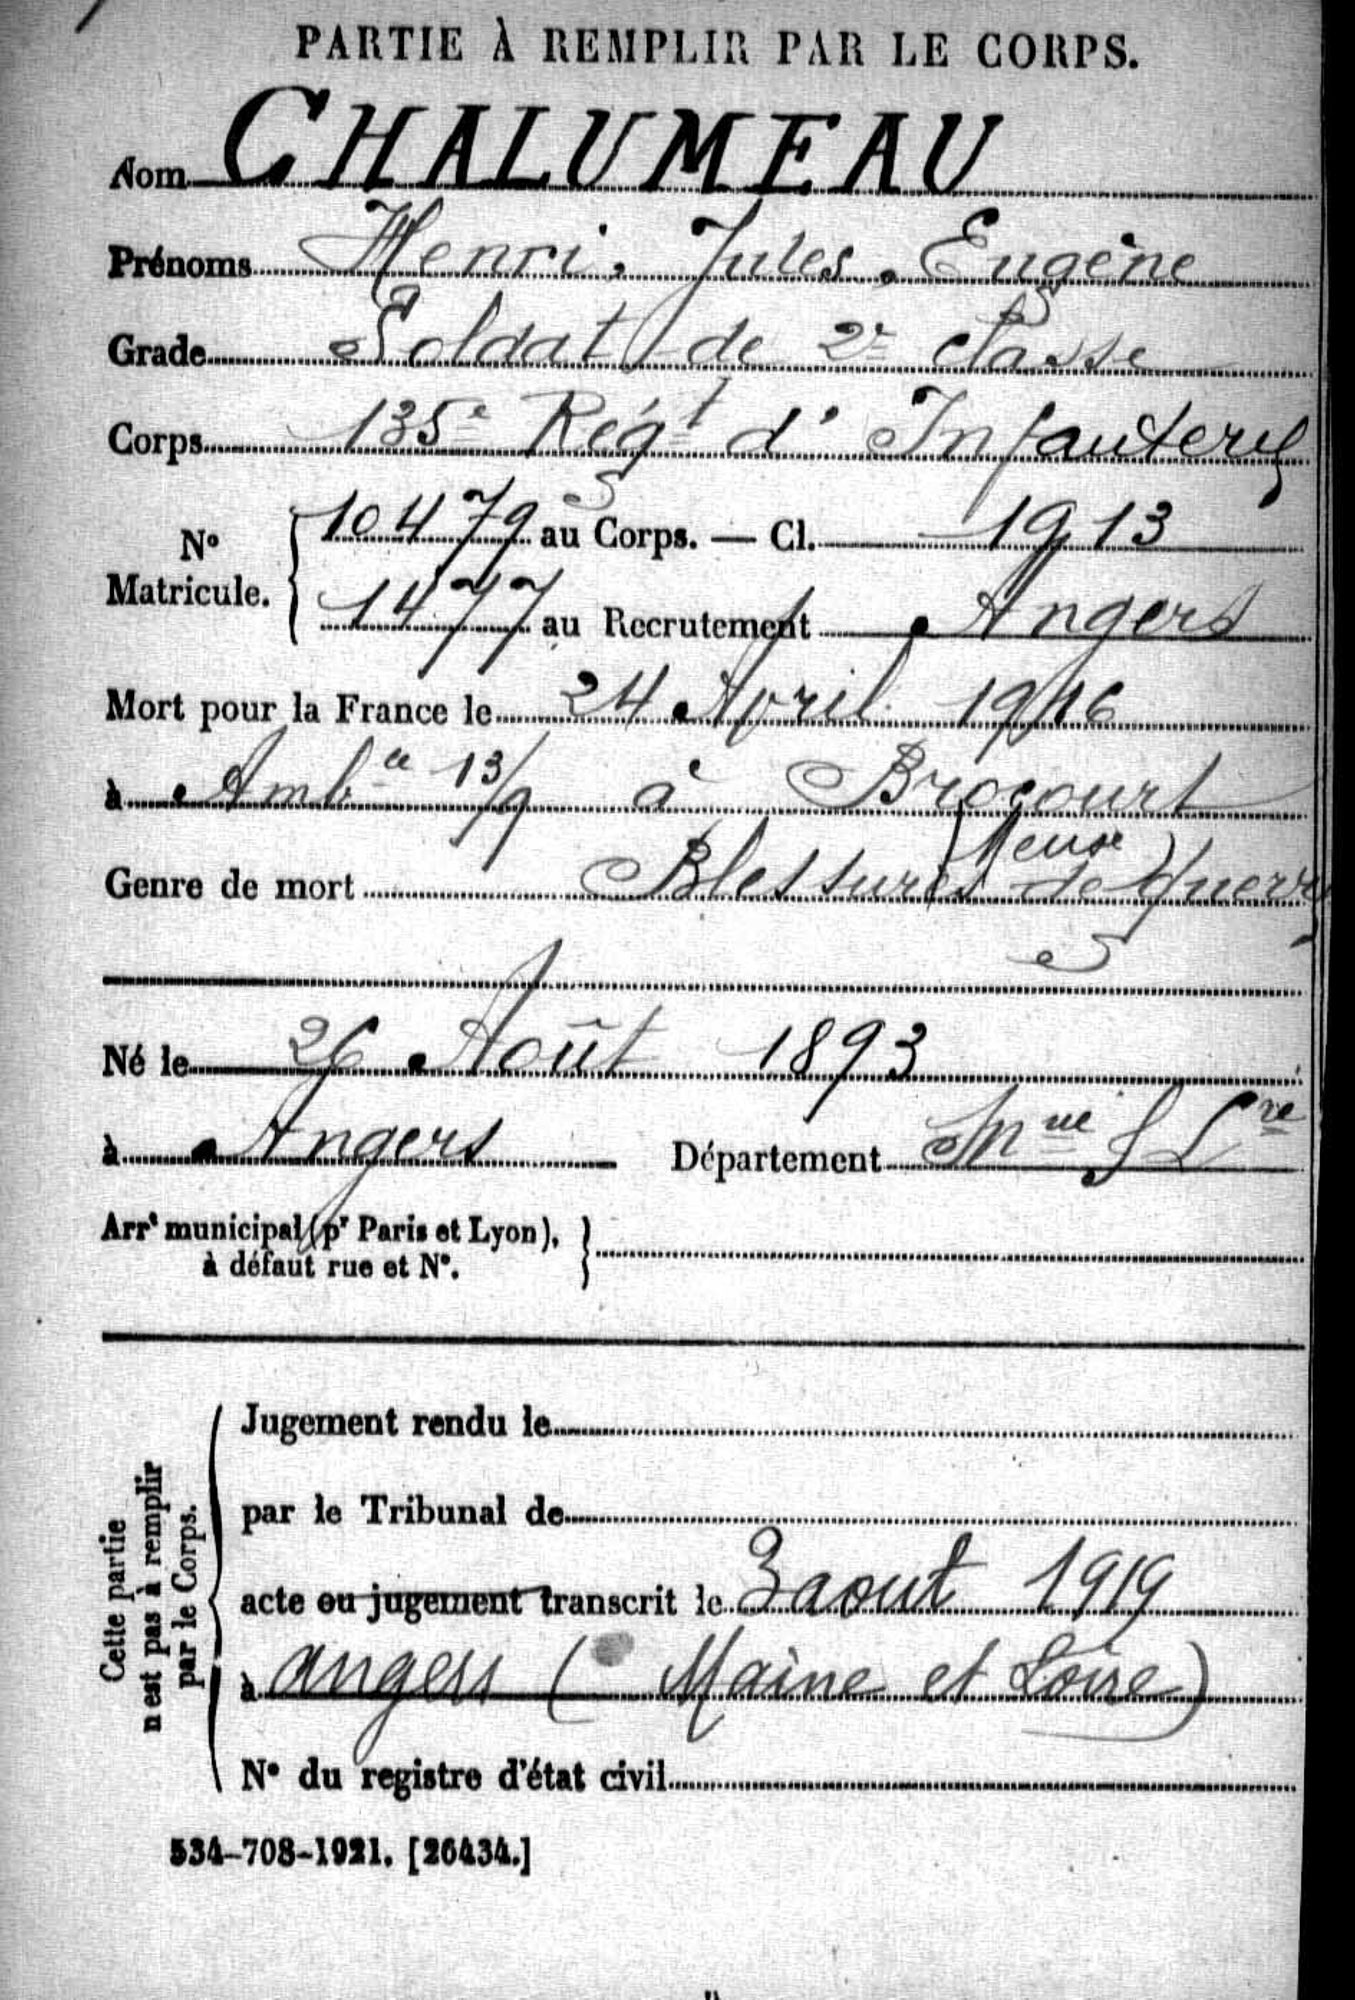 PARTIE À REMPLIR PAR LE CORPS.
Nom CHALUMEAU
Prénoms Henri, Jules, Eugène
Grade Soldat de 2e classe
Corps 135e Régt d'Infanterie
N° Matricule. { 10479 au Corps. — Cl. 1913
1477 au Recrutement Angers
Mort pour la France le 24 Avril 1916
à Ambce 13/9 à Brocourt
(Meuse)
Genre de mort Blessures de guerre
Né le 26 Août 1893
à Angers Département Mne & Lre
Arrt municipal (pr Paris et Lyon),
à défaut rue et N°.
Cette partie
n'est pas à remplir
par le Corps.
Jugement rendu le
par le Tribunal de
acte ou jugement transcrit le 3 aout 1919
à angers (Maine et Loire)
N° du registre d'état civil
534-708-1921. [26434.]